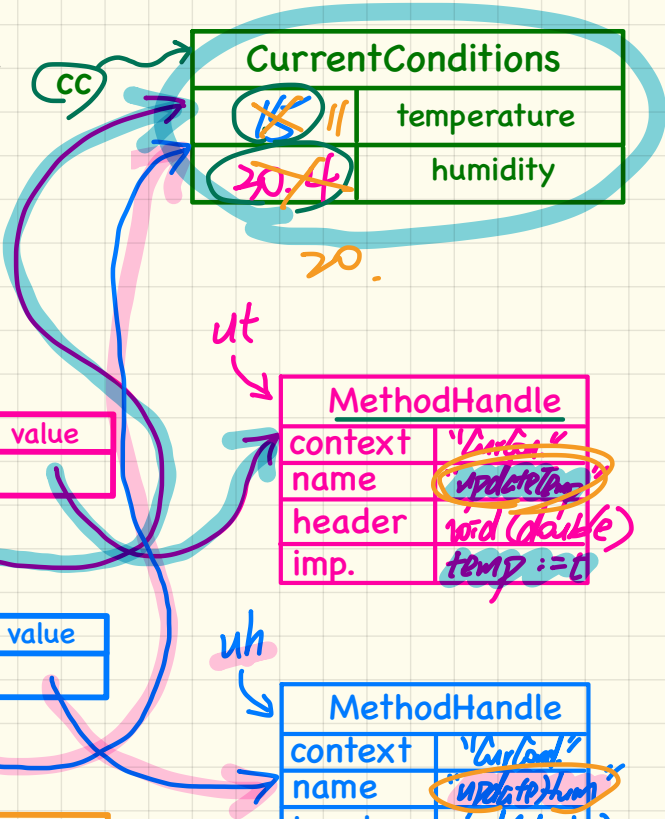 CurrentConditions
cc
15 11 temperature
20.4 humidity
20.
ut
MethodHandle
value
context "CurCon"
name "updateTemp"
header void (double)
imp. temp := t
value
uh
MethodHandle
context "CurCond"
name "updateHum"